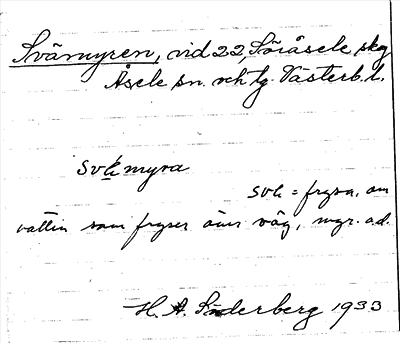 Svämyren, vid 22, Söråsele skg
Åsele sn. och tg. Västerb. l.
myra
= frysa, om
vattin som fryser över väg, myr. o.d.
H. A. Söderberg 1933